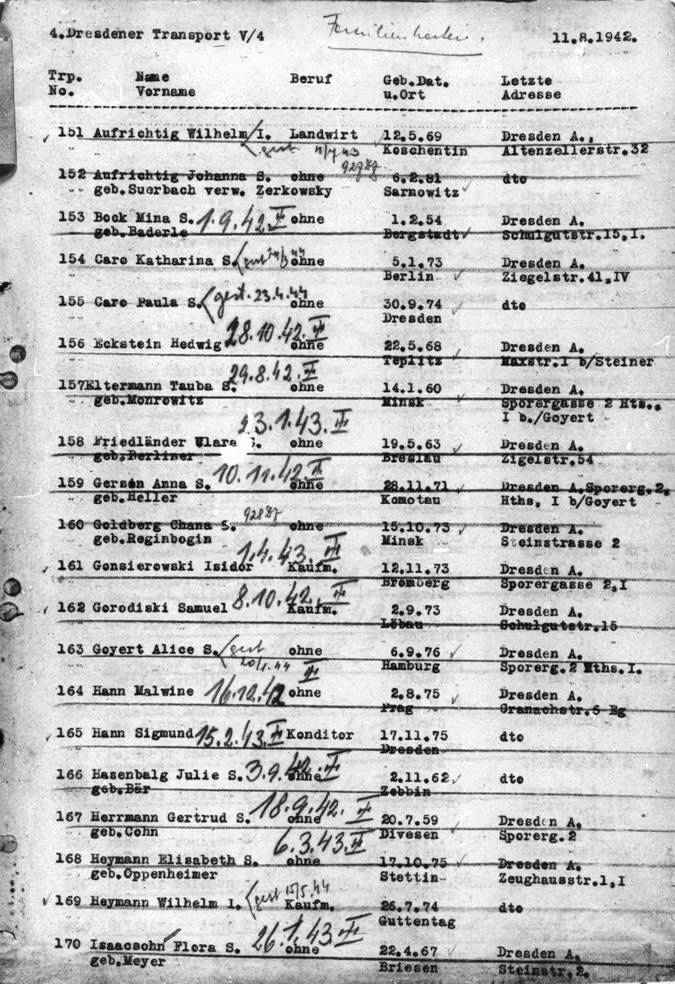 4.Dresdener Transport V/4 11.8.1942.
Trp. Name Beruf Geb.Dat. Letzte
No. Vorname u.Ort Adresse
151 Aufrichtig Wilhelm I. Landwirt 12.5.69 Dresden A.,
gest Koschentin Altenzellerstr.32
152 Aufrichtig Johanna S. ohne 6.2.81 dto
geb.Suerbach verw. Zerkowsky Sarnowitz
153 Bock Mina S. 1.9.42 ohne 1.2.54 Dresden A.
geb.Baderle Bergstadt Schulgutstr.15,I.
154 Caro Katharina S. gest ohne 5.1.73 Dresden A.
Berlin Ziegelstr.41,IV
155 Caro Paula S. gest. 23.4.44 ohne 30.9.74 dto
Dresden
156 Eckstein Hedwig 28.10.42. ohne 22.5.68 Dresden A.
Teplitz Maxstr.I b/Steiner
157Eltermann Tauba S. 29.8.42. 14.1.60 Dresden A.
geb.Monrowitz Minsk Sporergasse 2 Hts.,
I b./Goyert
23.1.43.
158 Friedländer Klara S. ohne 19.5.63 Dresden A.
geb.Berliner Breslau Zigelstr.54
159 Gersén Anna S. 10.11.42. ohne 28.11.71 Dresden A.Sporerg.2,
geb.Heller Komotau Hths, I b/Goyert
160 Goldberg Chana S. ohne 15.10.73 Dresden A.
geb.Reginbogin Minsk Steinstrasse 2
161 Gonsierowski Isidor 1.4.43. Kaufm. 12.11.73 Dresden A.
Bromberg Sporergasse 2,I
162 Gorodiski Samuel 8.10.42. Kaufm. 2.9.73 Dresden A.
Löbau Schulgutstr.15
163 Goyert Alice S. gest ohne 6.9.76 Dresden A.
Hamburg Sporerg.2 Hths.I.
164 Hann Malwine 16.12.42 ohne 2.8.75 Dresden A.
Prag Granachstr.6 Eg
165 Hann Sigmund 15.2.43. Konditor 17.11.75 dto
Dresden
166 Hasenbalg Julie S. 3.9.42. ohne 2.11.62 dto
geb.Bär Zebbin
167 Herrmann Gertrud S. 18.9.42. ohne 20.7.59 Dresden A.
geb.Cohn Divesen Sporerg.2
168 Heymann Elisabeth S. 6.3.43. ohne 17.10.75 Dresden A.
geb.Oppenheimer Stettin Zeughausstr.1,I
169 Heymann Wilhelm I. gest 15/5.44 Kaufm. 26.7.74 dto
Guttentag
170 Isaacsohn Flora S. 26.1.43. ohne 22.4.67 Dresden A.
geb.Meyer Briesen Steinstr.2.